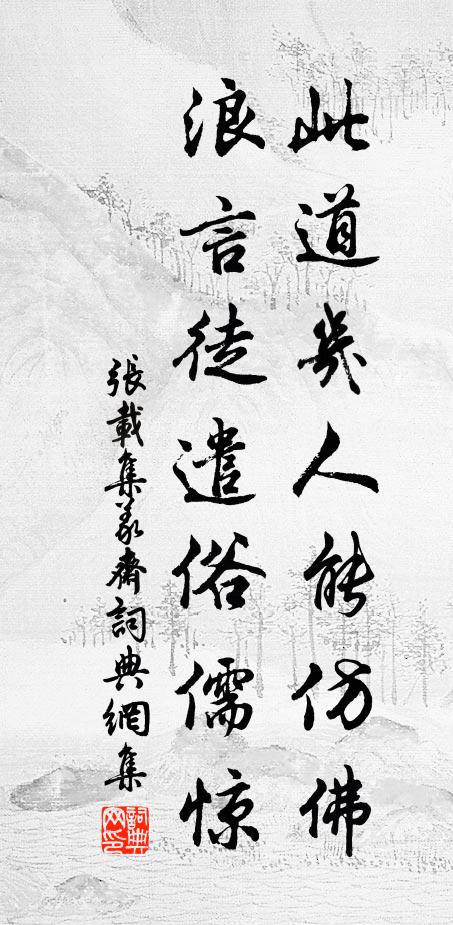 此道幾人能仿佛
浪言徒遣俗儒惊
張載集義齋詞典網集
詞典網印